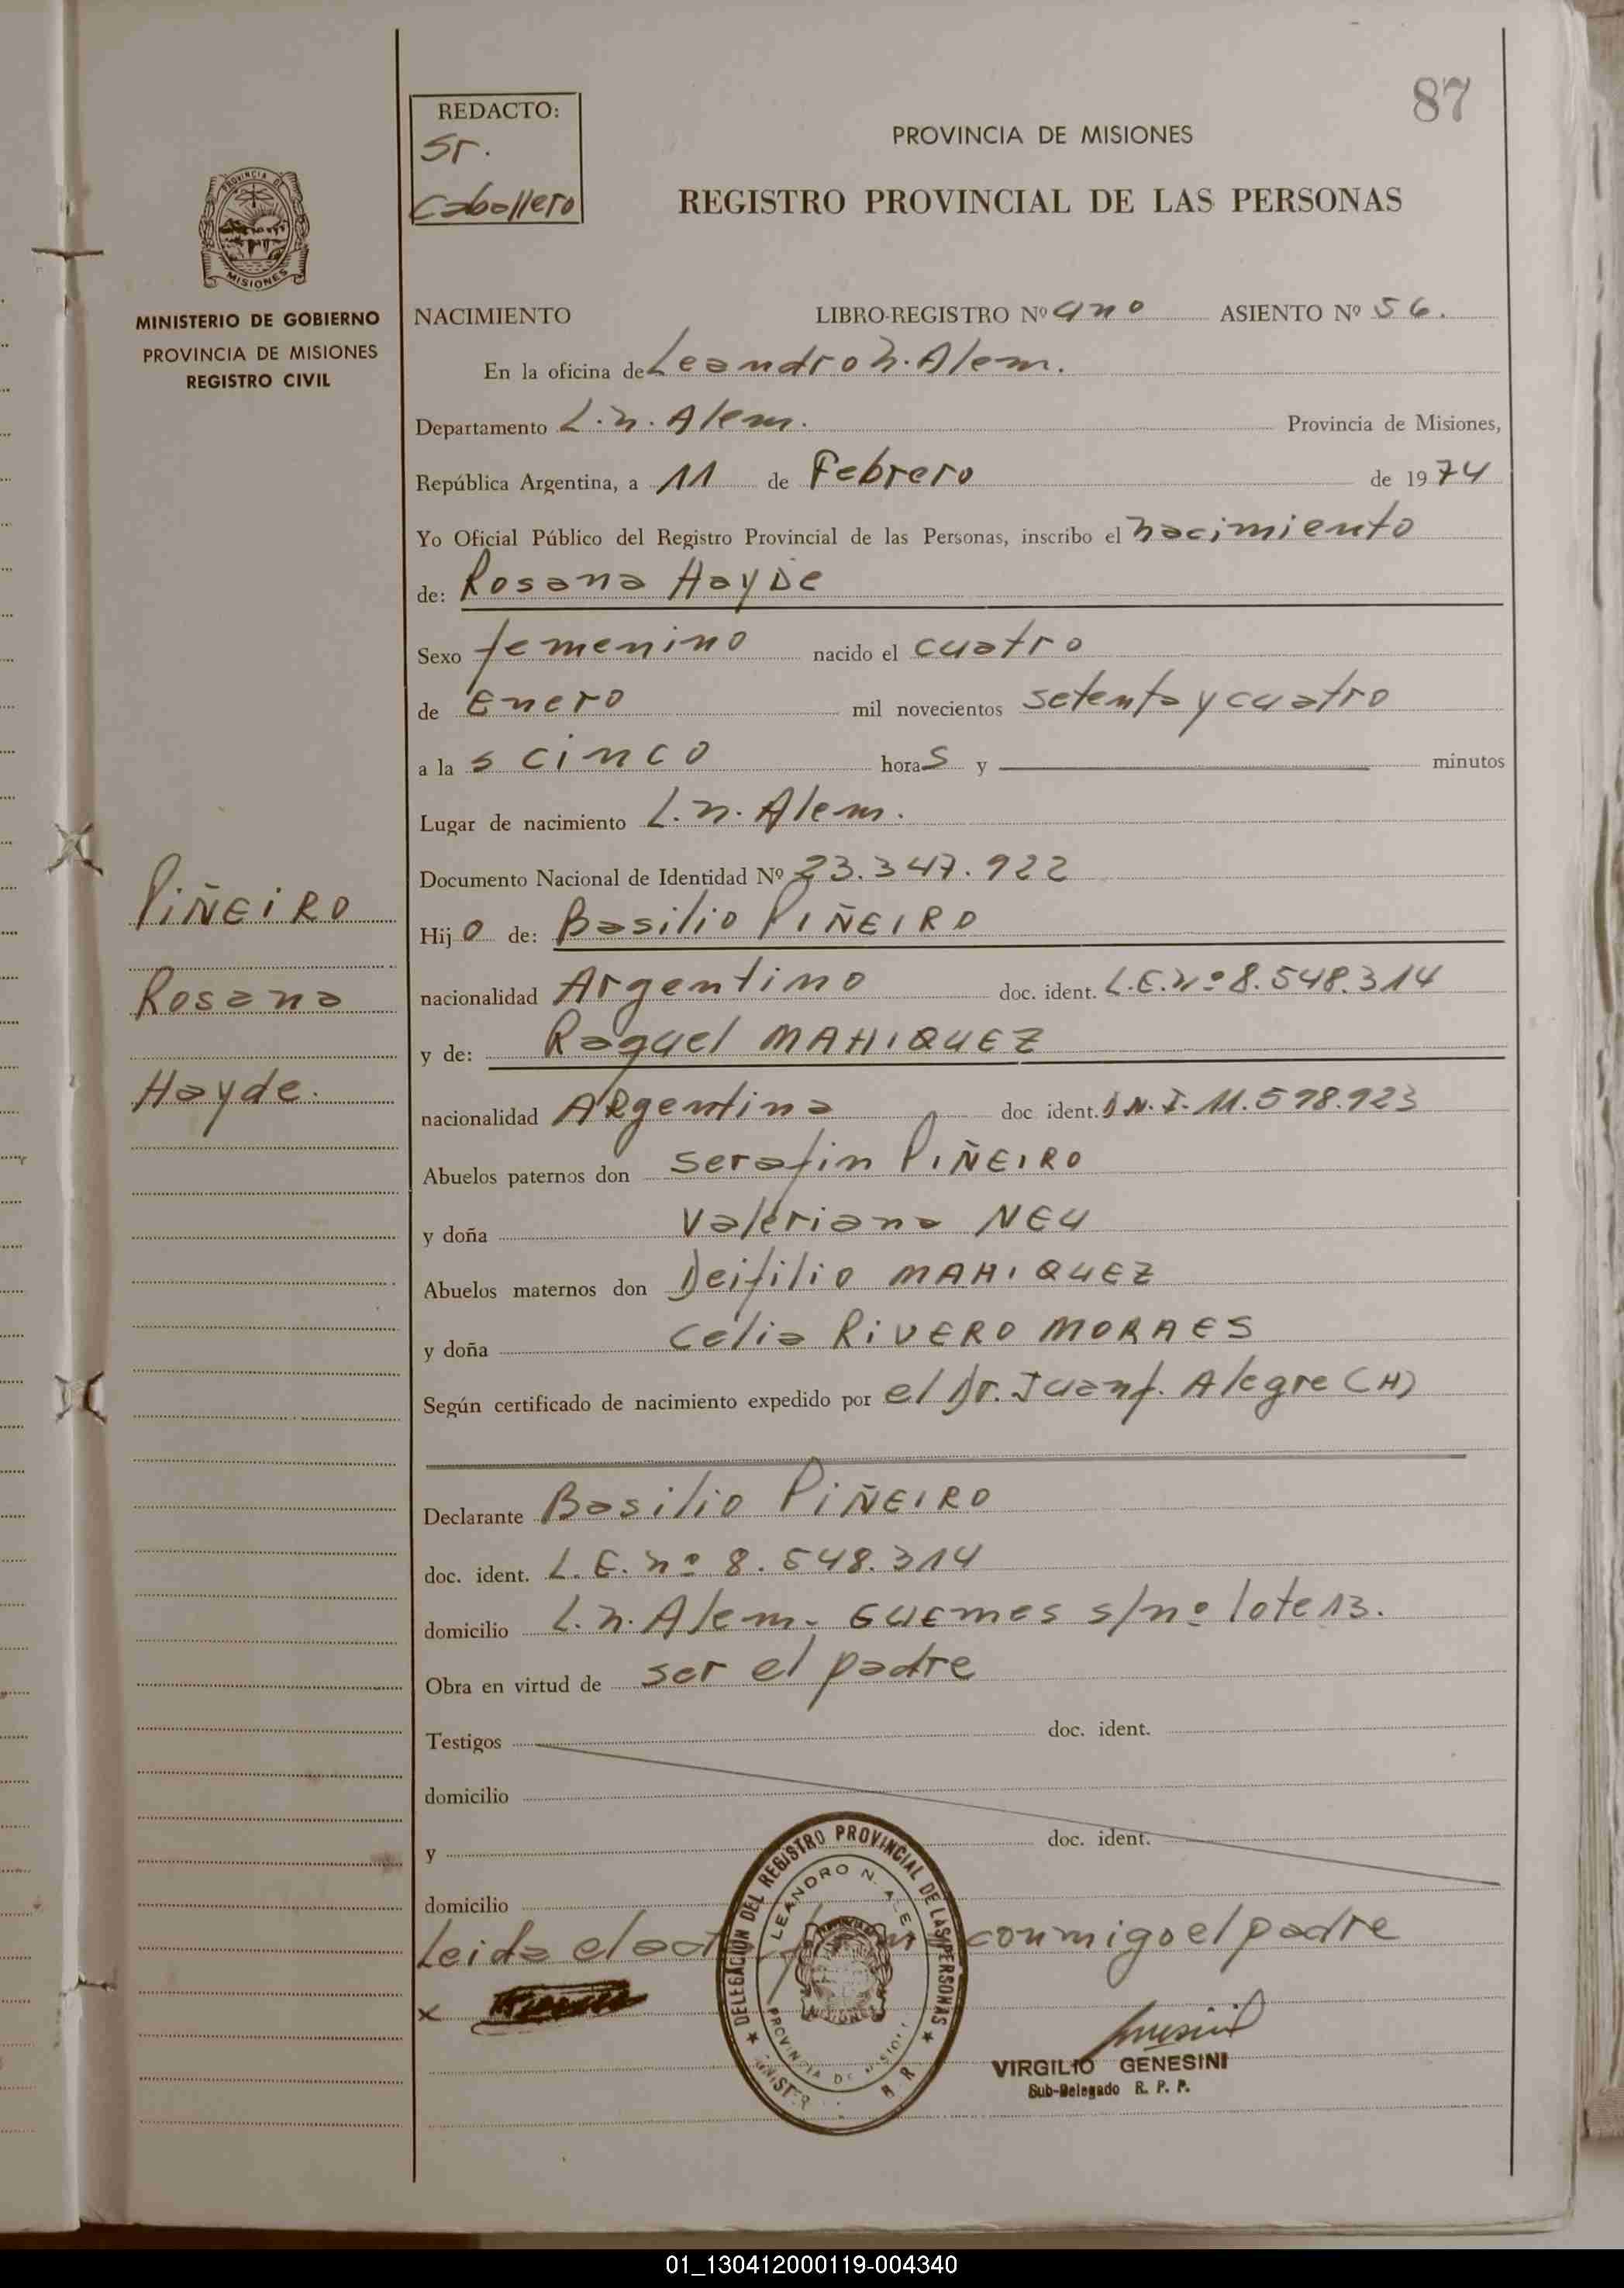 87
REDACTO:
Sr.
Caballero
PROVINCIA DE MISIONES
REGISTRO PROVINCIAL DE LAS PERSONAS
PROVINCIA DE
MISIONES
MINISTERIO DE GOBIERNO
PROVINCIA DE MISIONES
REGISTRO CIVIL
NACIMIENTO LIBRO-REGISTRO Nº uno ASIENTO Nº 56.
En la oficina de Leandro N. Alem.
Departamento L. N. Alem. Provincia de Misiones,
República Argentina, a 11 de Febrero de 1974
Yo Oficial Público del Registro Provincial de las Personas, inscribo el nacimiento
de: Rosana Hayde
Sexo femenino nacido el cuatro
de Enero mil novecientos setenta y cuatro
a las cinco horas y minutos
Lugar de nacimiento L. N. Alem.
Documento Nacional de Identidad Nº 23.347.922
PIÑEIRO
Rosana
Hayde.
Hijo de: Basilio PIÑEIRO
nacionalidad Argentino doc. ident. L.E. nº 8.548.314
y de: Raquel MAHIQUEZ
nacionalidad Argentina doc ident. D.N.I. 11.598.923
Abuelos paternos don Serafin PIÑEIRO
y doña Valeriana NEU
Abuelos maternos don Deifilio MAHIQUEZ
y doña Celia RIVERO MORAES
Según certificado de nacimiento expedido por el Dr. Juan f. Alegre (H)
Declarante Basilio PIÑEIRO
doc. ident. L. E. nº 8.548.314
domicilio L. N. Alem. GUEMES s/nº lote 13.
Obra en virtud de ser el padre
Testigos doc. ident.
domicilio
y doc. ident.
domicilio
Leida el acta conmigo el padre
x
DELEGACION DEL REGISTRO PROVINCIAL DE LAS PERSONAS
LEANDRO N. ALE
PROVINCIA DE MISIONES
VIRGILIO GENESINI
Sub-Delegado R. P. P.
01_130412000119-004340